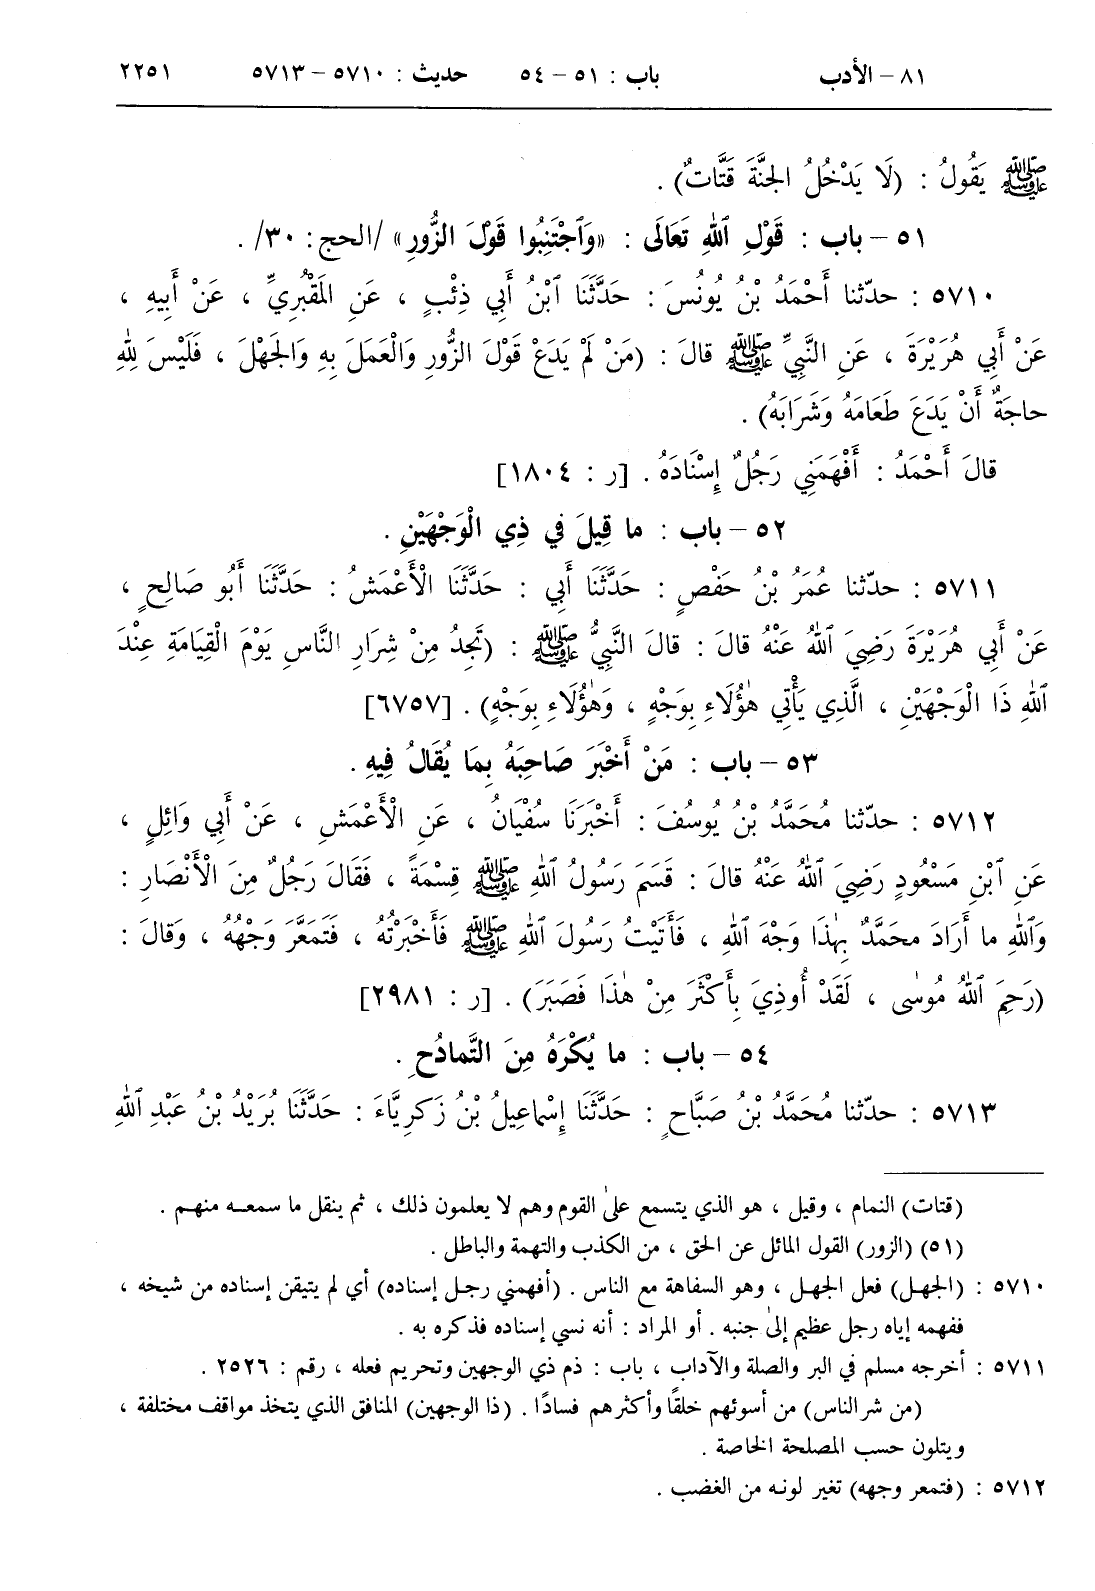 ٨١ – الأدب باب : ٥١ – ٥٤ حديث : ٥٧١٠ – ٥٧١٣ ٢٢٥١
ﷺ يَقُولُ : (لَا يَدْخُلُ الجَنَّةَ قَتَّاتٌ) .
٥١ – باب : قَوْلِ ٱللهِ تَعَالَى : «وَٱجْتَنِبُوا قَوْلَ الزُّورِ» /الحج : ٣٠/ .
٥٧١٠ : حدّثنا أَحْمَدُ بْنُ يُونُسَ : حَدَّثَنَا ٱبْنُ أَبِي ذِئْبٍ ، عَنِ المَقْبُرِيِّ ، عَنْ أَبِيهِ ،
عَنْ أَبِي هُرَيْرَةَ ، عَنِ النَّبِيِّ ﷺ قالَ : (مَنْ لَمْ يَدَعْ قَوْلَ الزُّورِ وَالْعَمَلَ بِهِ وَالجَهْلَ ، فَلَيْسَ لِلهِ
حاجَةٌ أَنْ يَدَعَ طَعَامَهُ وَشَرَابَهُ) .
قالَ أَحْمَدُ : أَفْهَمَنِي رَجُلٌ إِسْنَادَهُ . [ر : ١٨٠٤]
٥٢ – باب : ما قِيلَ في ذِي الْوَجْهَيْنِ .
٥٧١١ : حدّثنا عُمَرُ بْنُ حَفْصٍ : حَدَّثَنَا أَبِي : حَدَّثَنَا الْأَعْمَشُ : حَدَّثَنَا أَبُو صَالِحٍ ،
عَنْ أَبِي هُرَيْرَةَ رَضِيَ ٱللهُ عَنْهُ قالَ : قالَ النَّبِيُّ ﷺ : (تَجِدُ مِنْ شِرَارِ النَّاسِ يَوْمَ الْقِيَامَةِ عِنْدَ
ٱللهِ ذَا الْوَجْهَيْنِ ، الَّذِي يَأْتِي هٰؤُلَاءِ بِوَجْهٍ ، وَهٰؤُلَاءِ بِوَجْهٍ) . [٦٧٥٧]
٥٣ – باب : مَنْ أَخْبَرَ صَاحِبَهُ بِمَا يُقَالُ فِيهِ .
٥٧١٢ : حدّثنا مُحَمَّدُ بْنُ يُوسُفَ : أَخْبَرَنَا سُفْيَانُ ، عَنِ الْأَعْمَشِ ، عَنْ أَبِي وَائِلٍ ،
عَنِ ٱبْنِ مَسْعُودٍ رَضِيَ ٱللهُ عَنْهُ قالَ : قَسَمَ رَسُولُ ٱللهِ ﷺ قِسْمَةً ، فَقَالَ رَجُلٌ مِنَ الْأَنْصَارِ :
وَٱللهِ ما أَرَادَ محَمَّدٌ بِهٰذَا وَجْهَ ٱللهِ ، فَأَتَيْتُ رَسُولَ ٱللهِ ﷺ فَأَخْبَرْتُهُ ، فَتَمَعَّرَ وَجْهُهُ ، وَقالَ :
(رَحِمَ ٱللهُ مُوسٰى ، لَقَدْ أُوذِيَ بِأَكْثَرَ مِنْ هٰذَا فَصَبَرَ) . [ر : ٢٩٨١]
٥٤ – باب : ما يُكْرَهُ مِنَ التَّمادُحِ .
٥٧١٣ : حدّثنا مُحَمَّدُ بْنُ صَبَّاحٍ : حَدَّثَنَا إِسْماعِيلُ بْنُ زَكَرِيَّاءَ : حَدَّثَنَا بُرَيْدُ بْنُ عَبْدِ ٱللهِ
(قتات) النمام ، وقيل ، هو الذي يتسمع علىٰ القوم وهم لا يعلمون ذلك ، ثم ينقل ما سمعه منهم .
(٥١) (الزور) القول المائل عن الحق ، من الكذب والتهمة والباطل .
٥٧١٠ : (الجهل) فعل الجهل ، وهو السفاهة مع الناس . (أفهمني رجل إسناده) أي لم يتيقن إسناده من شيخه ،
ففهمه إياه رجل عظيم إلىٰ جنبه . أو المراد : أنه نسي إسناده فذكره به .
٥٧١١ : أخرجه مسلم في البر والصلة والآداب ، باب : ذم ذي الوجهين وتحريم فعله ، رقم : ٢٥٢٦ .
(من شر الناس) من أسوئهم خلقًا وأكثرهم فسادًا . (ذا الوجهين) المنافق الذي يتخذ مواقف مختلفة ،
ويتلون حسب المصلحة الخاصة .
٥٧١٢ : (فتمعر وجهه) تغير لونه من الغضب .